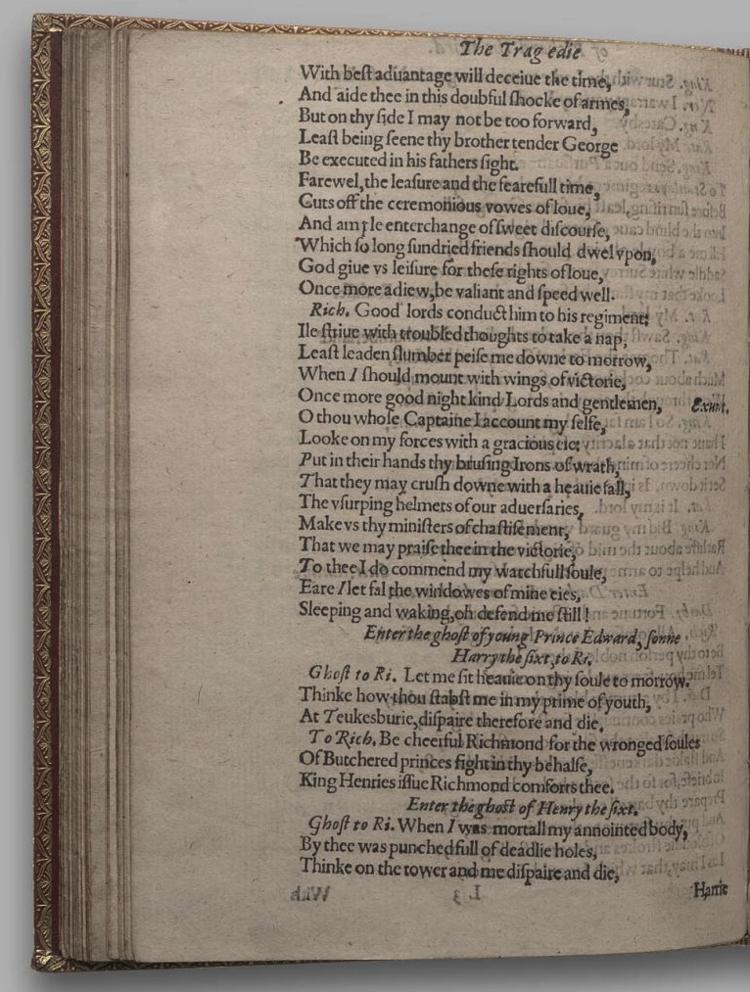 The Tragedie
With beſt aduantage will deceiue the time,
And aide thee in this doubful ſhocke of armes,
But on thy ſide I may not be too forward,
Leaſt being ſeene thy brother tender George
Be executed in his fathers ſight.
Farewel,the leaſure and the fearefull time,
Cuts off the ceremonious vowes of loue,
And ample enterchange of ſweet diſcourſe,
Which ſo long ſundried friends ſhould dwel vpon,
God giue vs leiſure for theſe rights of loue,
Once more adiew,be valiant and ſpeed well.
Rich. Good lords conduct him to his regiment:
Ile ſtriue with troubled thoughts to take a nap,
Leaſt leaden ſlumber peiſe me downe to morrow,
When I ſhould mount with wings of victorie,
Once more good night kind Lords and gentlemen, Exunt.
O thou whoſe Captaine I account my ſelfe,
Looke on my forces with a gracious eie:
Put in their hands thy bruſing Irons of wrath,
That they may cruſh downe with a heauie fall,
The vſurping helmets of our aduerſaries,
Make vs thy miniſters of chaſtiſement,
That we may praiſe thee in the victorie,
To thee I do commend my watchfull ſoule,
Eare I let fal the windowes of mine eies,
Sleeping and waking,oh defend me ſtill!
Enter the ghoſt of young Prince Edward, ſonne
Harry the ſixt, to Ri.
Ghoſt to Ri. Let me ſit heauie on thy ſoule to morrow.
Thinke how thou ſtabſt me in my prime of youth,
At Teukesburie,diſpaire therefore and die.
To Rich. Be cheerful Richmond for the wronged ſoules
Of Butchered princes fight in thy behalfe,
King Henries iſſue Richmond comforts thee.
Enter the ghoſt of Henry the ſixt.
Ghoſt to Ri. When I was mortall my annointed body,
By thee was punched full of deadlie holes,
Thinke on the tower and me diſpaire and die,
Harrie